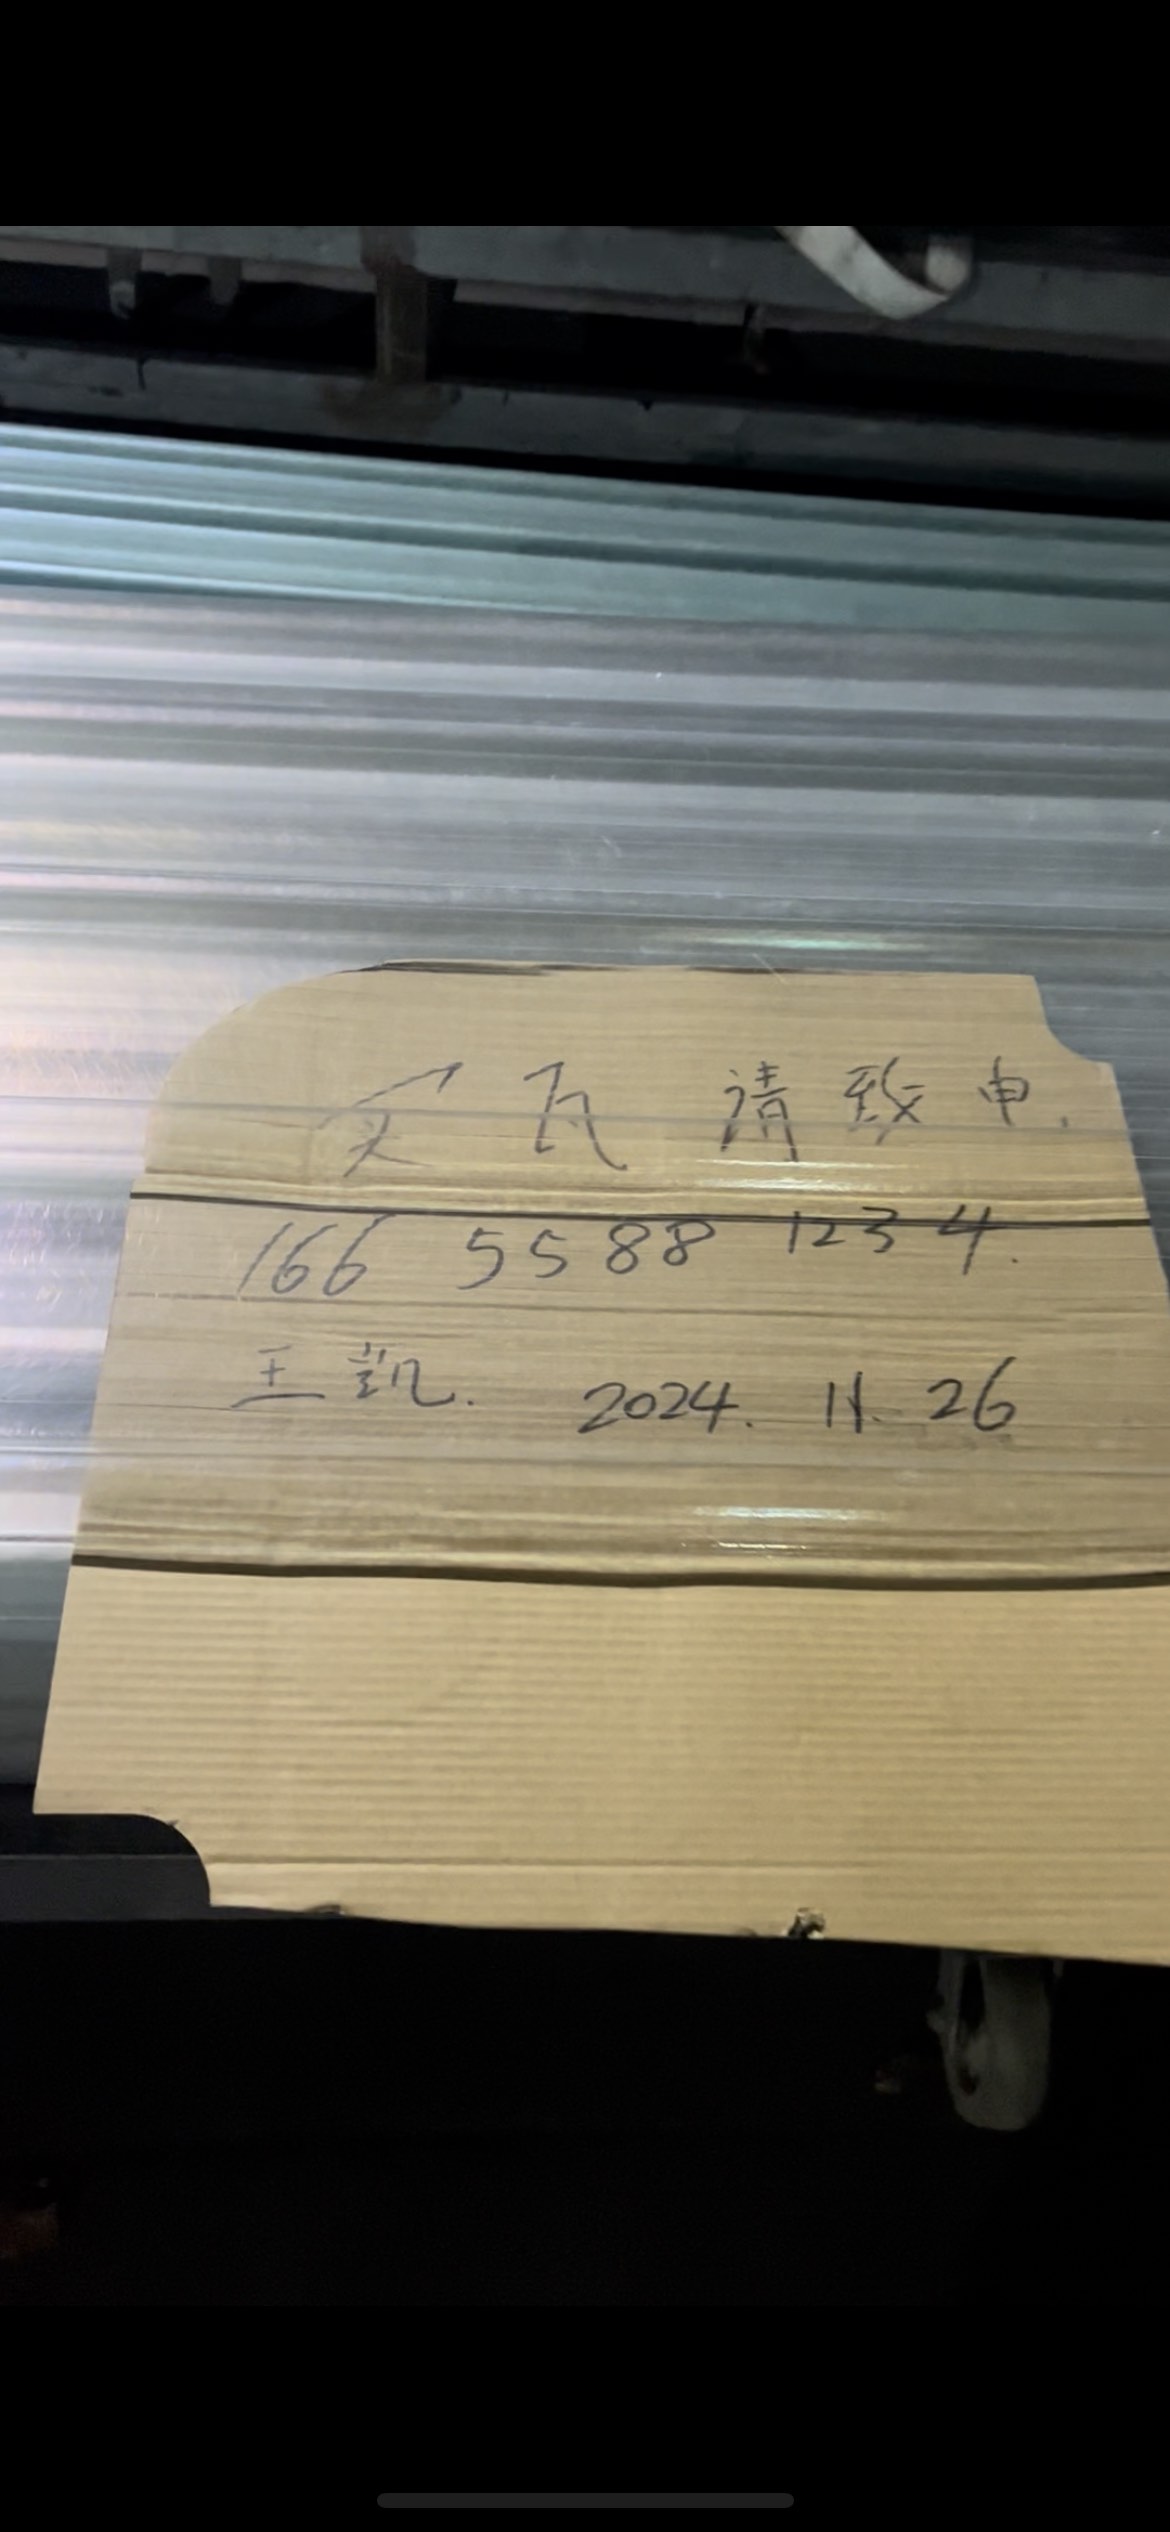 买瓦 请致电.
166 5588 1234.
王凯. 2024. 11. 26